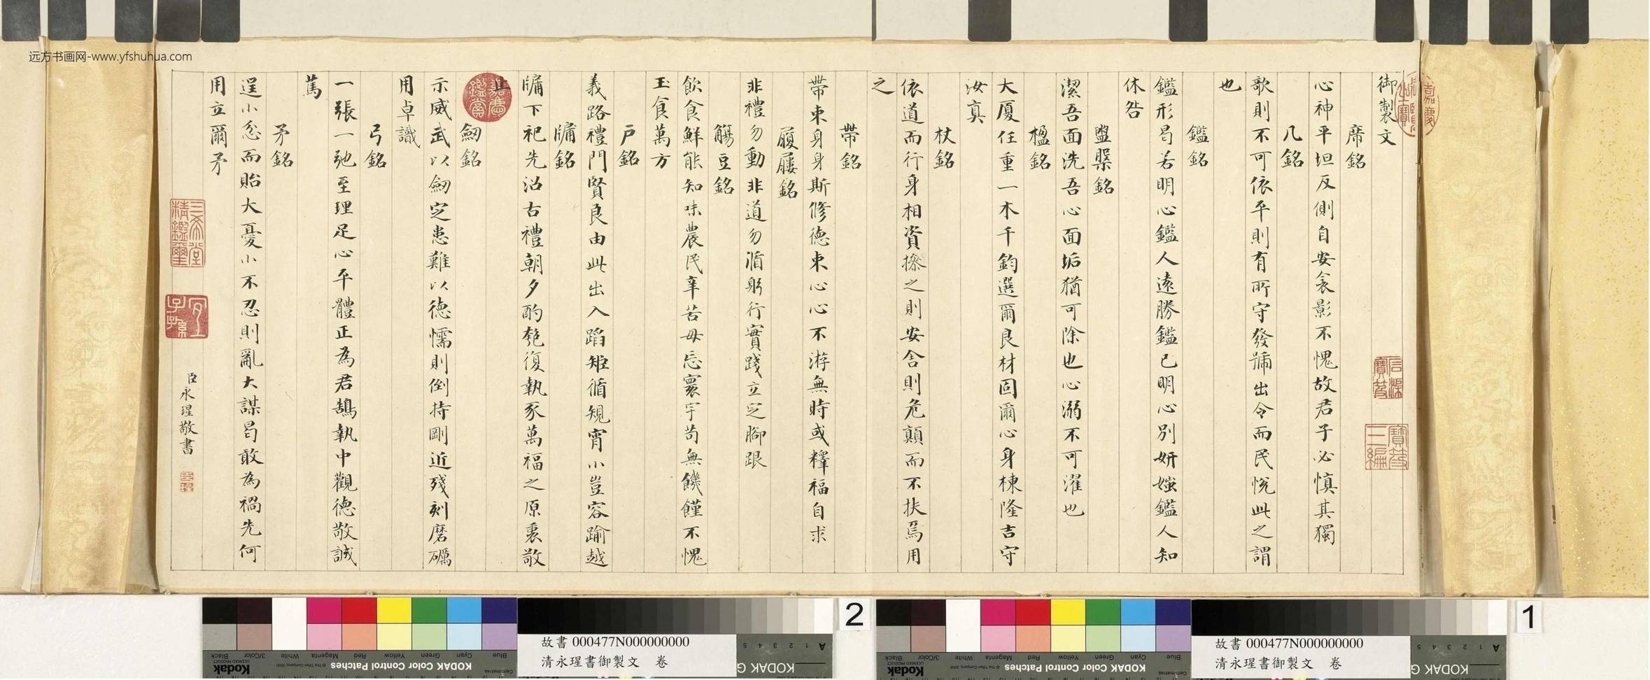 远方书画网-www.yfshuhua.com
御製文
席銘
心神平坦反側自安衾影不愧故君子必慎其獨
几銘
歌則不可依平則有所守發號出令而民悅此之謂
也
鑑銘
鑑形曷若明心鑑人遠勝鑑己明心別妍媸鑑人知
休咎
盥槃銘
潔吾面洗吾心面垢猶可除也心溺不可濯也
楹銘
大厦任重一木千鈞選爾良材固爾心身棟隆吉守
汝真
杖銘
依道而行身相資撩之則安舍則危顛而不扶焉用
之
帶銘
帶束身身斯修德束心心不游無時或釋福自求
履屨銘
非禮勿動非道勿循躬行實踐立定腳跟
觴豆銘
飲食鮮能知味農民辛苦毋忘寰宇苟無饑饉不愧
玉食萬方
戶銘
義路禮門賢良由此出入蹈矩循規宵小豈容踰越
牖銘
牖下祀先沿古禮朝夕酌匏復執豕萬福之原裏敬
止
劒銘
示威武以劒定患難以德懦則倒持剛近殘刻磨礪
用卓識
弓銘
一張一弛至理足心平體正為君鵠執中觀德敬誠
篤
矛銘
逞小忿而貽大憂小不忍則亂大謀曷敢為禍先何
用立爾矛
臣永瑆敬書
嘉慶鑑賞
三希堂精鑑璽
宜子孫
寶笈三編
2
1
故書 000477N000000000
清永瑆書御製文 卷
故書 000477N000000000
清永瑆書御製文 卷
KODAK Color Control Patches
Blue Cyan Green Yellow Red Magenta White 3/Color Black
Kodak
KODAK G
A 1 2 3 4 5
KODAK Color Control Patches
Blue Cyan Green Yellow Red Magenta White 3/Color Black
Kodak
KODAK G
A 1 2 3 4 5